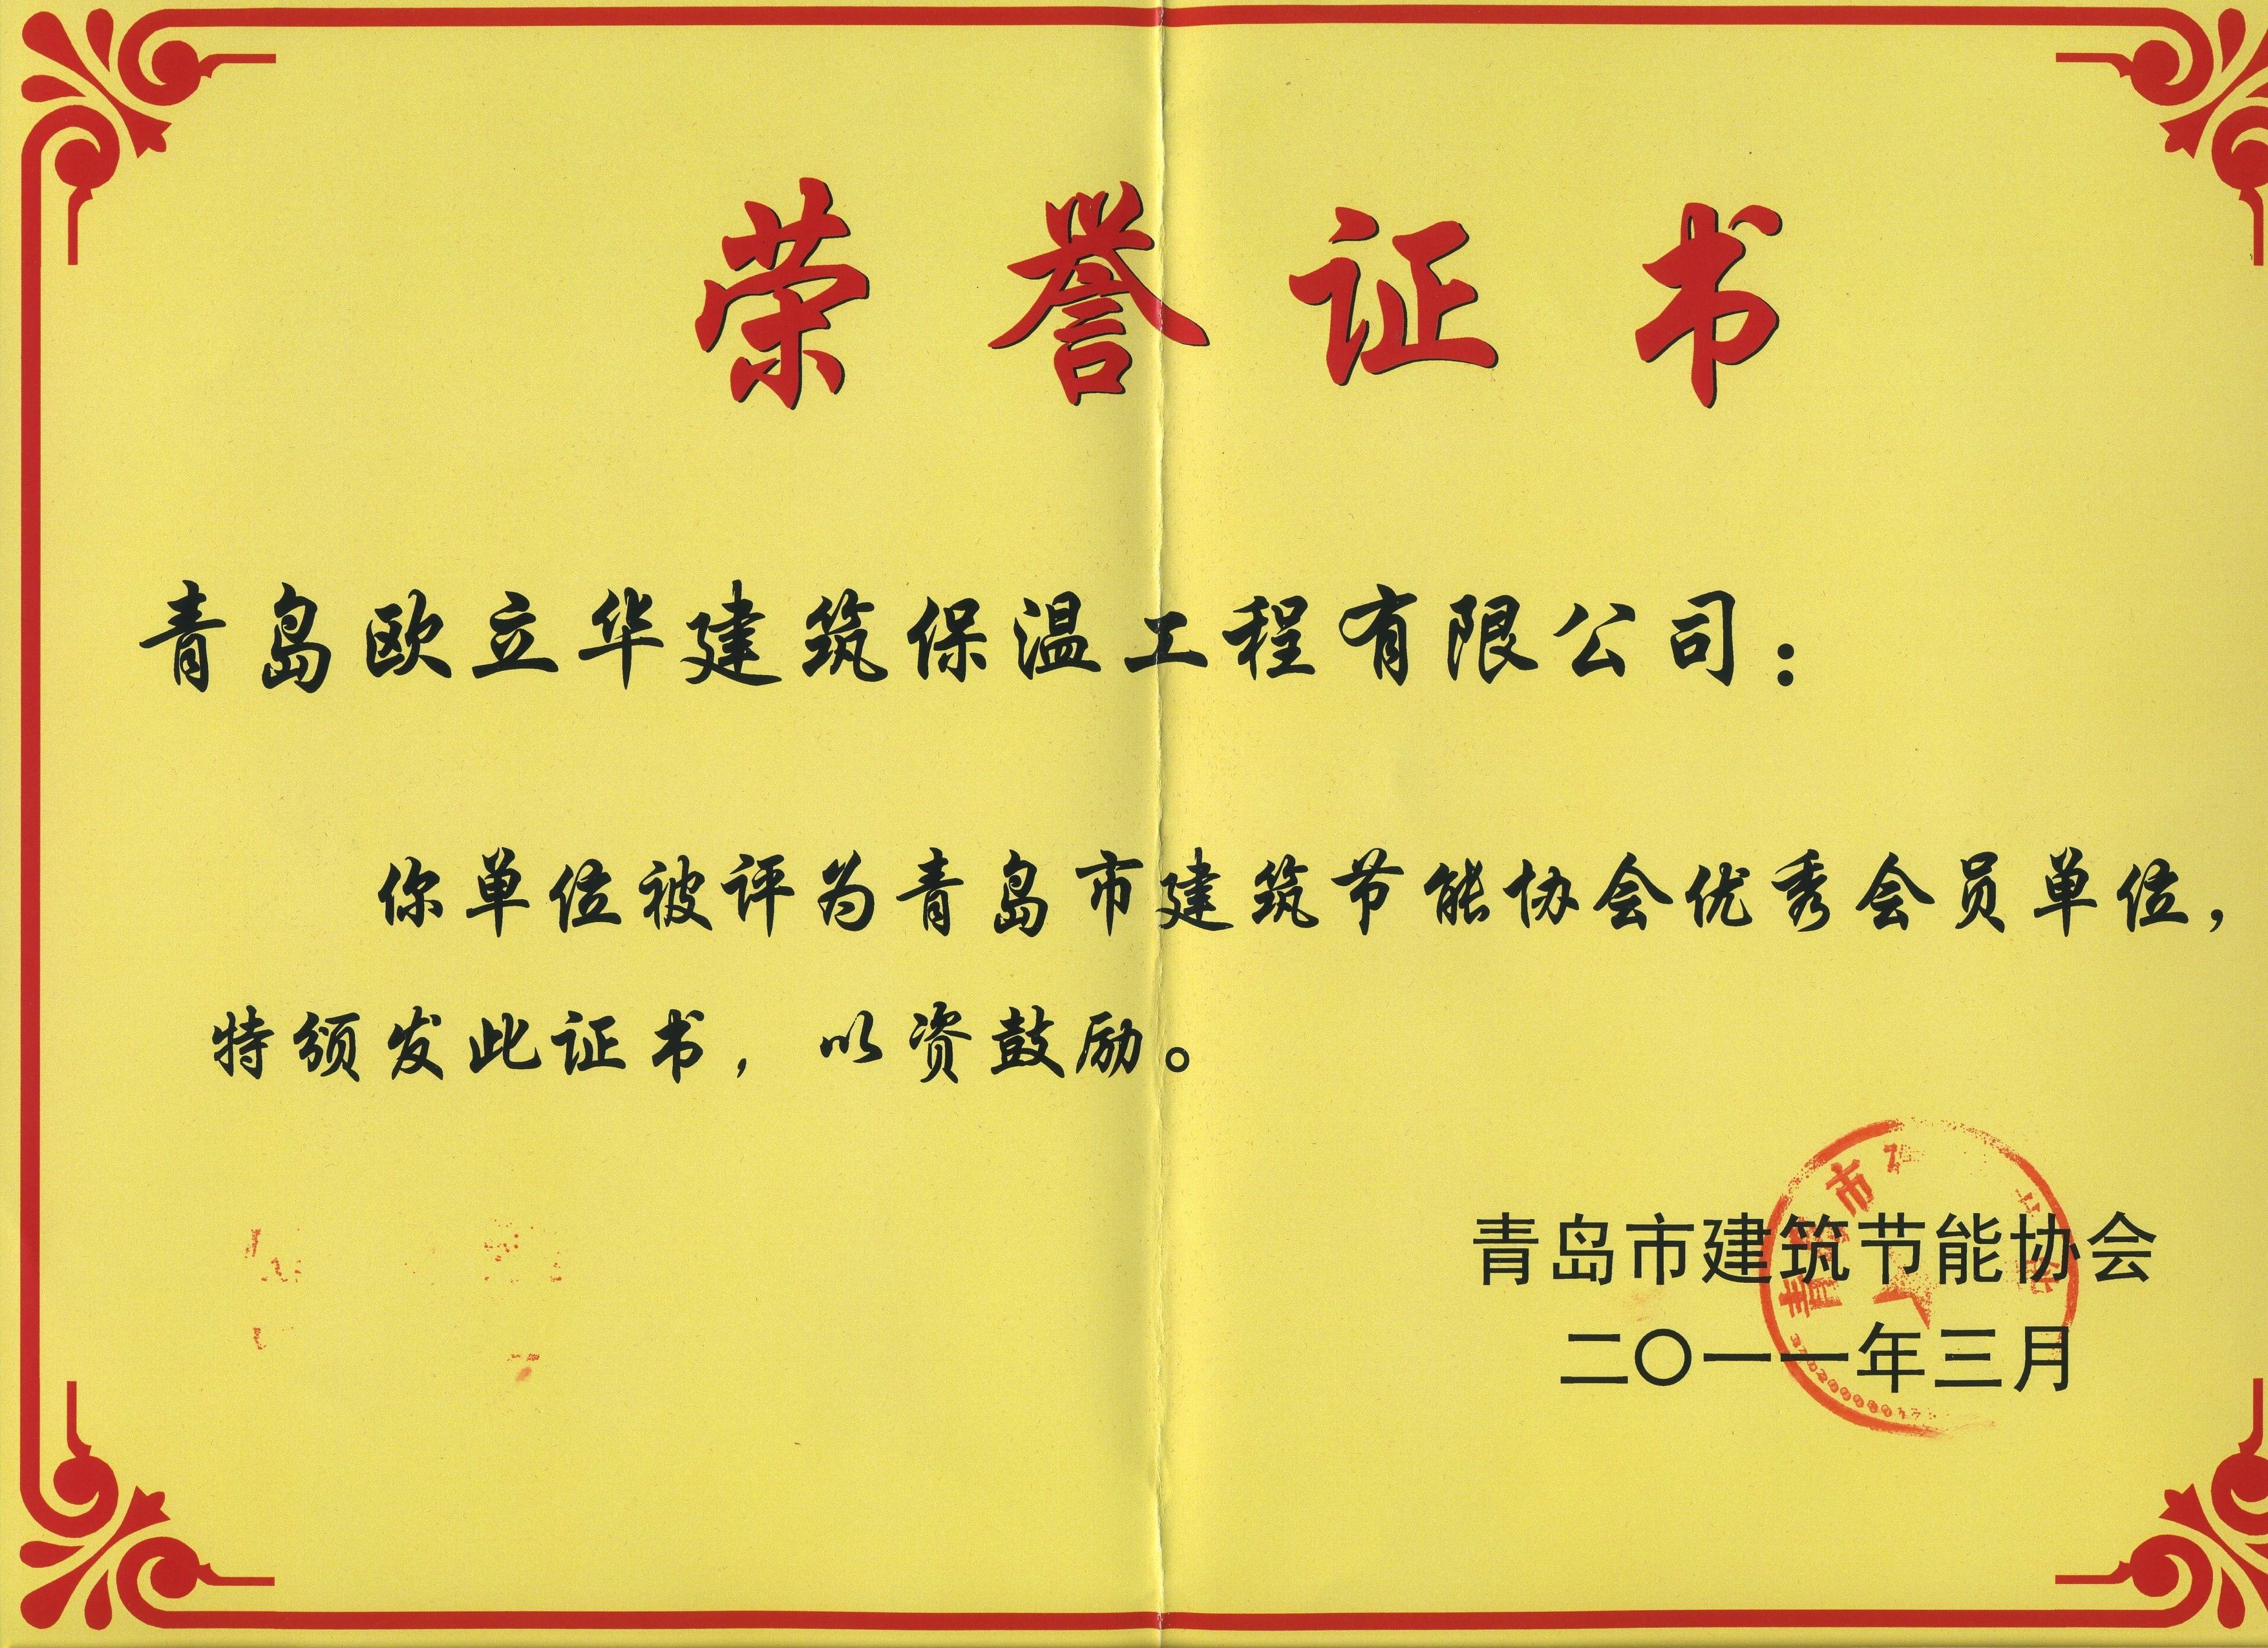 荣誉证书
青岛欧立华建筑保温工程有限公司：
你单位被评为青岛市建筑节能协会优秀会员单位，
特颁发此证书，以资鼓励。
青岛市建筑节能协会
二〇一一年三月